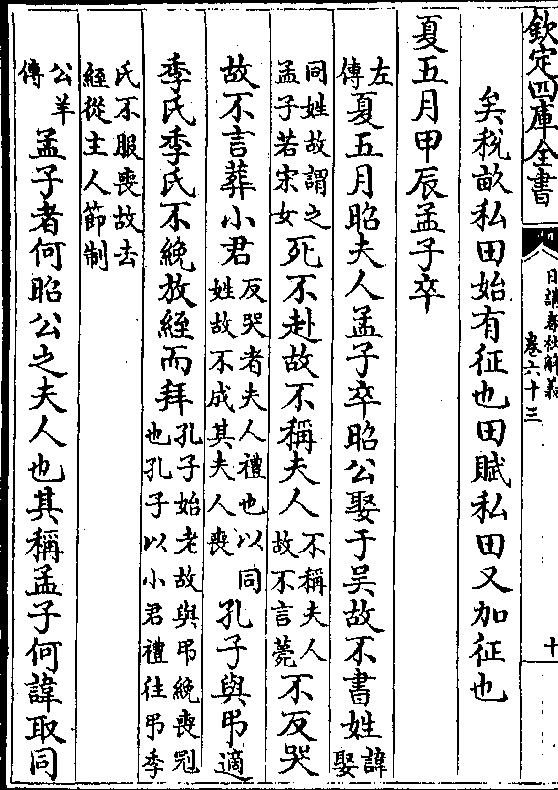 欽定四庫全書
日講春秋解義
卷六十三
十
矣稅畝私田始有征也田賦私田又加征也
夏五月甲辰孟子卒
左傳夏五月昭夫人孟子卒昭公娶于吳故不書姓諱娶
同姓故謂之孟子若宋女死不赴故不稱夫人不稱夫人故不言薨不反哭
故不言葬小君反哭者夫人禮也以同姓故不成其夫人喪孔子與弔適
季氏季氏不絻放絰而拜孔子始老故與弔絻喪冠也孔子以小君禮往弔季
氏不服喪故去絰從主人節制
公羊傳孟子者何昭公之夫人也其稱孟子何諱取同